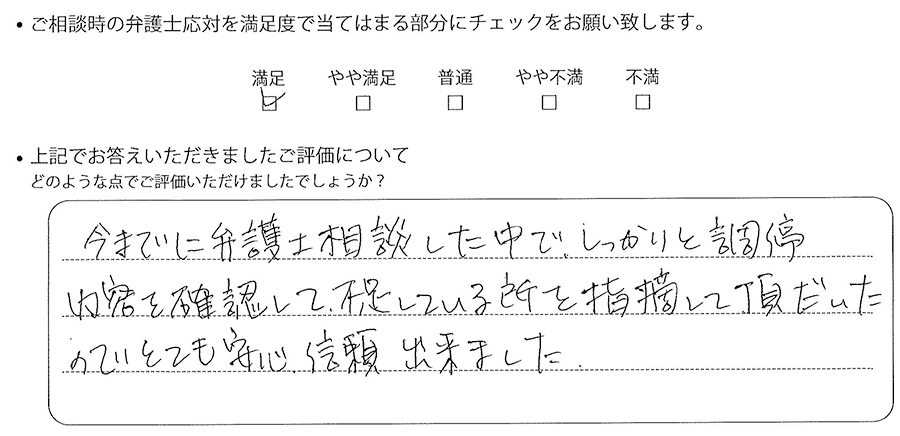 • ご相談時の弁護士応対を満足度で当てはまる部分にチェックをお願い致します。
満足 やや満足 普通 やや不満 不満
• 上記でお答えいただきましたご評価について
どのような点でご評価いただけましたでしょうか？
今までに弁護士相談した中で、しっかりと調停
内容を確認して、不足している所を指摘して頂だいた
のでとても安心、信頼出来ました。